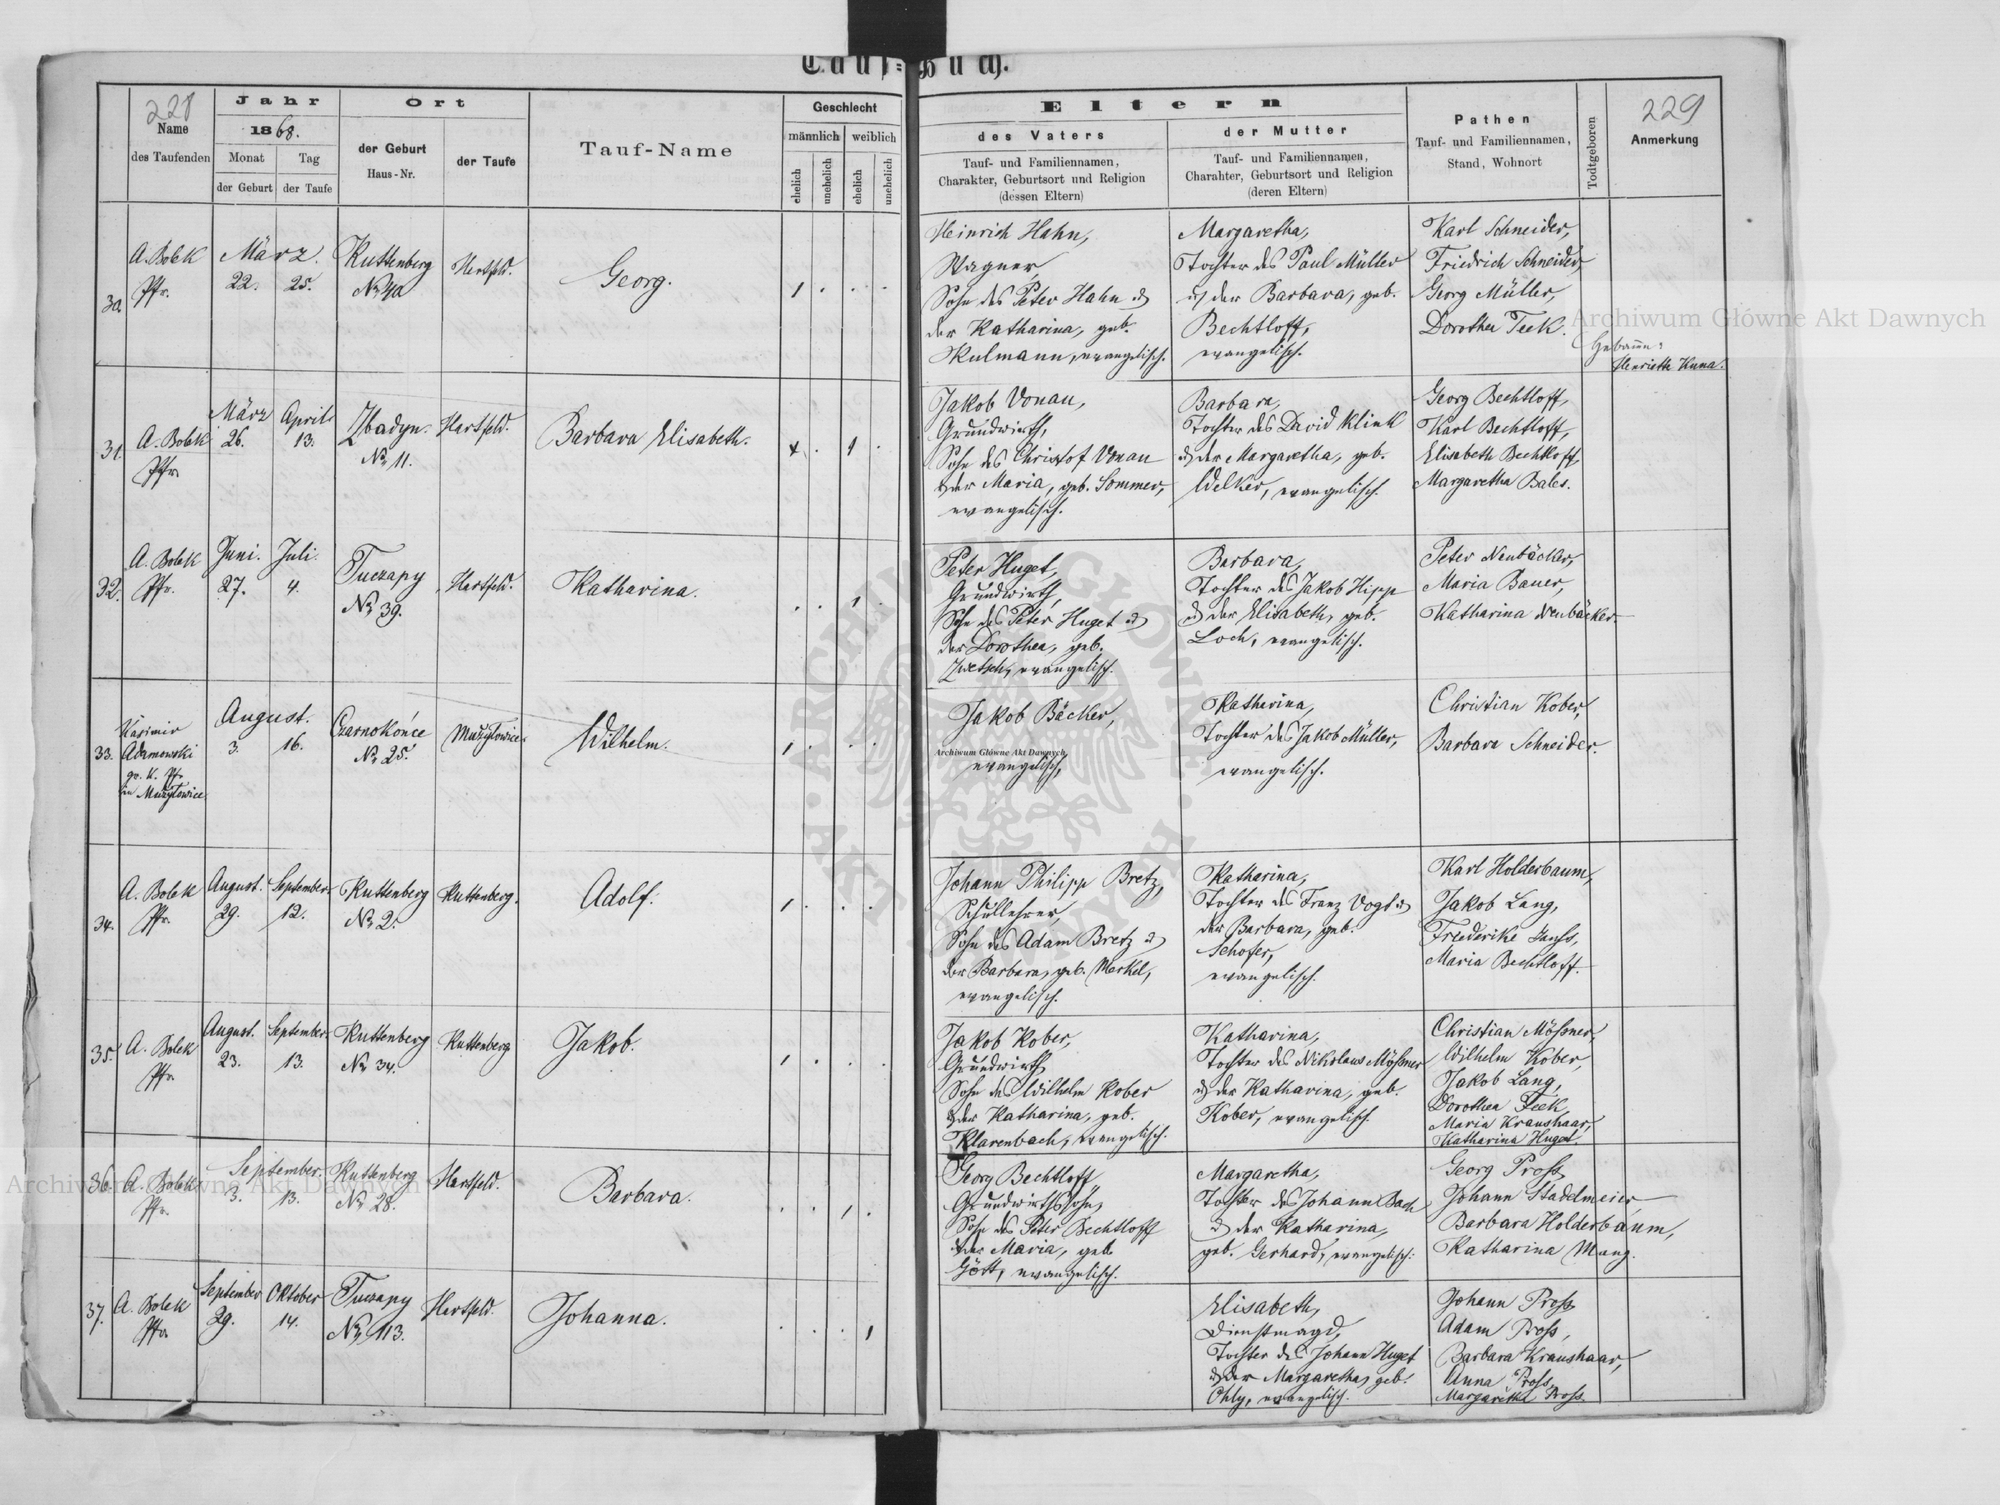 Tauf-Buch.
228
Name
des Taufenden
Jahr
1868.
Monat
Tag
der Geburt
der Taufe
Ort
der Geburt
Haus-Nr.
der Taufe
Tauf-Name
Geschlecht
männlich
weiblich
ehelich
unehelich
ehelich
unehelich
Eltern
des Vaters
Tauf- und Familiennamen,
Charakter, Geburtsort und Religion
(dessen Eltern)
der Mutter
Tauf- und Familiennamen,
Charahter, Geburtsort und Religion
(deren Eltern)
Pathen
Tauf- und Familiennamen,
Stand, Wohnort
Todtgeboren
229
Anmerkung
30.
A. Bolek
Pfr.
März.
22.
25.
Kuttenberg
No 40
Hartfeld.
Georg.
Heinrich Hahn,
Wagner,
Sohn des Peter Hahn u
der Katharina, geb.
Kulmann, evangelisch.
Margaretha,
Tochter des Paul Müller
u der Barbara, geb.
Bechtloff,
evangelisch.
Karl Schneider,
Friedrich Schneider,
Georg Müller,
Dorothea Feek.
Hebamme:
Henriette Kuna.
31.
A. Bolek
Pfr.
März
26.
April
13.
Zbadyn.
No 11.
Hartfeld.
Barbara Elisabeth.
Jakob Vonau,
Grundwirth,
Sohn des Christof Vonau
u der Maria, geb. Sommer,
evangelisch.
Barbara,
Tochter des David Klink
u der Margaretha, geb.
Welker, evangelisch.
Georg Bechtloff,
Karl Bechtloff,
Elisabeth Bechtloff
Margaretha Bales.
32.
A. Bolek
Pfr.
Juni.
27.
Juli.
4.
Tuczapy
No 39.
Hartfeld.
Katharina.
Peter Huget,
Grundwirth,
Sohn des Peter Huget u
der Dorothea, geb.
Zwetsch, evangelisch.
Barbara,
Tochter des Jakob Hipp
u der Elisabeth, geb.
Loch, evangelisch.
Peter Neubäcker,
Maria Bauer,
Katharina Neubäcker.
33.
Kasimir
Adamowski
gr. k. Pfr.
in Mużyłowice
August.
3.
16.
Czarnokońce
No 25.
Mużyłowice.
Wilhelm.
Jakob Bäcker,
evangelisch,
Katharina,
Tochter des Jakob Müller,
evangelisch.
Christian Kober,
Barbara Schneider.
34.
A. Bolek
Pfr.
August.
29.
September.
12.
Kuttenberg
No 2.
Kuttenberg.
Adolf.
Johann Philipp Bretz,
Schullehrer,
Sohn des Adam Bretz u
der Barbara, geb. Merkel,
evangelisch.
Katharina,
Tochter des Franz Vogt u
der Barbara, geb.
Schofer,
evangelisch.
Karl Holderbaum,
Jakob Lang,
Frederike
Maria Bechtloff.
35.
A. Bolek
Pfr.
August.
23.
September.
13.
Kuttenberg
No 34.
Kuttenberg
Jakob.
Jakob Kober,
Grundwirth
Sohn des Wilhelm Kober
u der Katharina, geb.
Klarenbach, evangelisch.
Katharina,
Tochter des Nikolaus Mößner
u der Katharina, geb.
Kober, evangelisch.
Christian Mößner,
Wilhelm Kober,
Jakob Lang,
Dorothea Feek
Maria Kraushaar,
Katharina Huget
36.
A. Bolek
Pfr.
September.
3.
13.
Kuttenberg
No 28.
Hartfeld.
Barbara.
Georg Bechtloff,
Grundwirthssohn,
Sohn des Peter Bechtloff
u der Maria, geb.
Gött, evangelisch.
Margaretha,
Tochter des Johann Bach
u der Katharina,
geb. Gerhard, evangelisch.
Georg Pross,
Johann Stadelmeier,
Barbara Holderbaum,
Katharina Mang.
37.
A. Bolek
Pfr.
September
29.
Oktober
14.
Tuczapy
No 113.
Hartfeld.
Johanna.
Elisabeth,
Dienstmagd,
Tochter des Johann Huget
u der Margaretha, geb.
Ohly, evangelisch.
Johann Pross
Adam Pross,
Barbara Kraushaar,
Anna Pross,
Margaretha Pross.
Archiwum Główne Akt Dawnych
Archiwum Główne Akt Dawnych
Archiwum Główne Akt Dawnych
ARCHIWUM GŁÓWNE AKT DAWNYCH